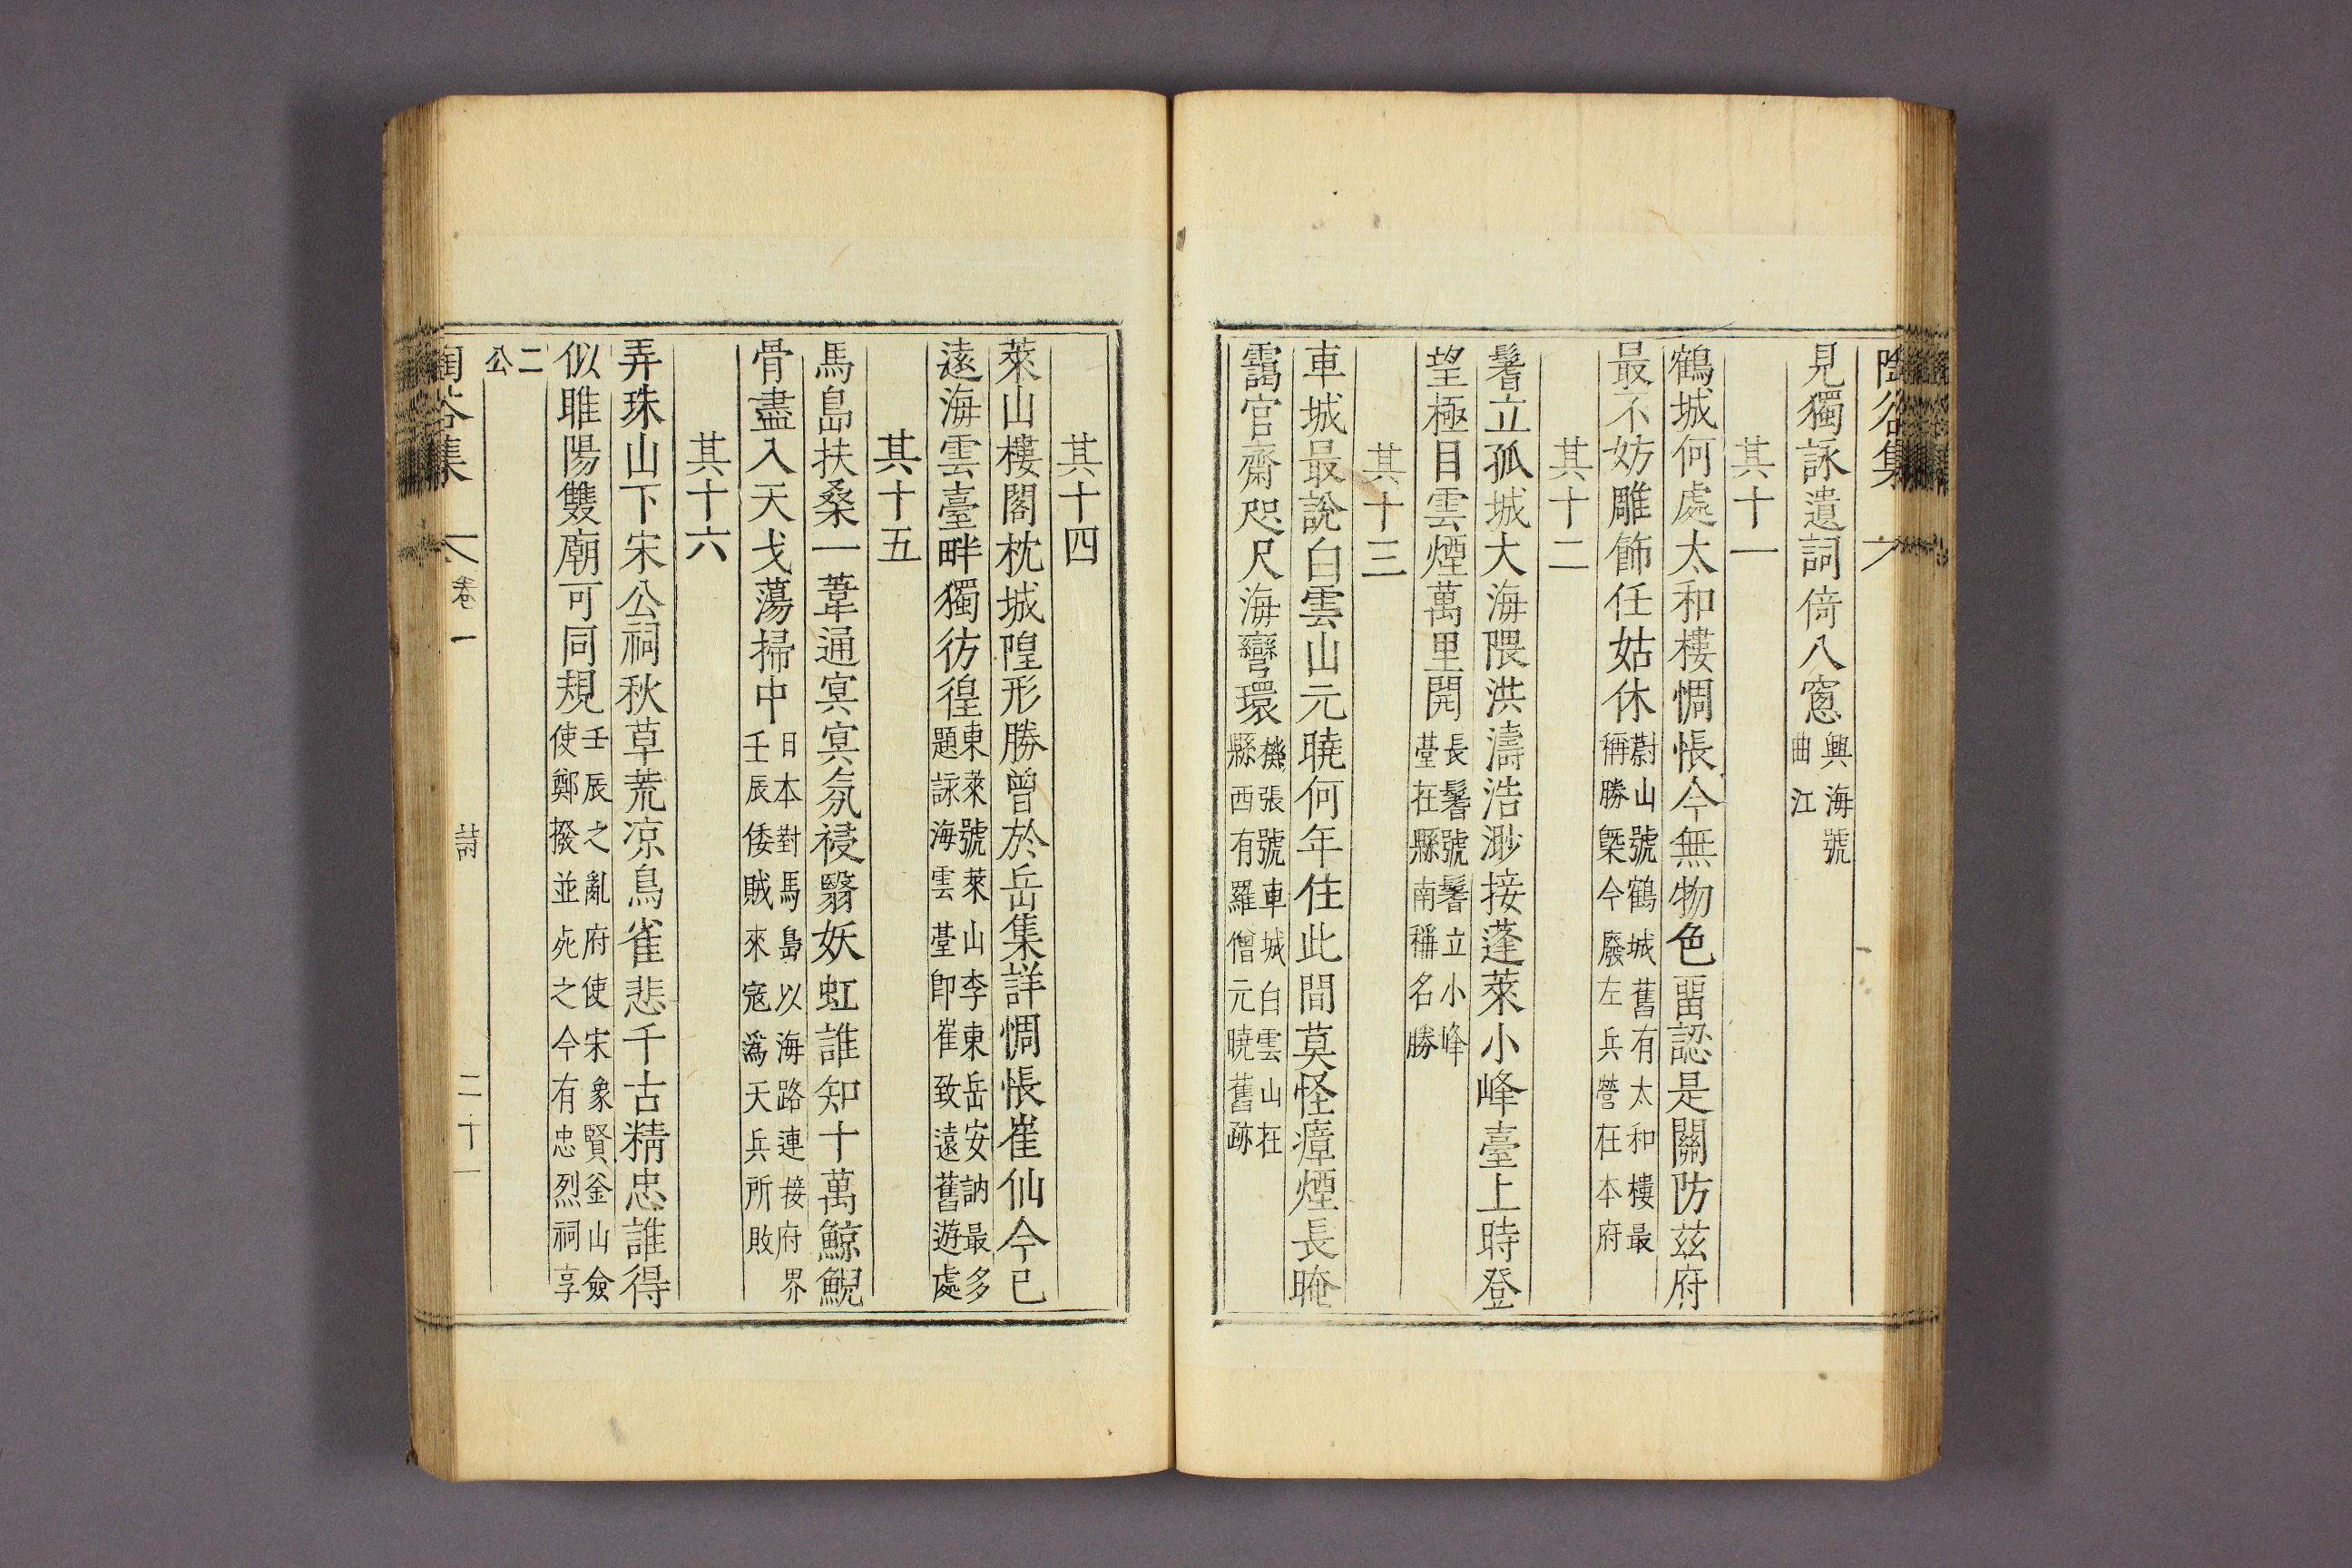 陶谷集
見獨詠遺詞倚八窻興海號曲江
其十一
鶴城何處太和樓惆悵今無物色畱認是關防茲府
最不妨雕餙任姑休蔚山號鶴城舊有太和樓最稱勝槩今廢左兵營在本府
其十二
鬐立孤城大海隈洪濤浩渺接蓬萊小峰臺上時登
望極目雲煙萬里開長鬐號鬐立小峰臺在縣南稱名勝
其十三
車城最說白雲山元曉何年住此間莫怪瘴煙長晻
靄官齋咫尺海彎環機張號車城白雲山在縣西有羅僧元曉舊跡
其十四
萊山樓閣枕城隍形勝曾於岳集詳惆悵崔仙今已
遠海雲臺畔獨彷徨東萊號萊山李東岳安訥最多題詠海雲臺卽崔致遠舊遊處
其十五
馬島扶桑一葦通冥冥氛祲翳妖虹誰知十萬鯨鯢
骨盡入天戈蕩掃中日本對馬島以海路連接府界壬辰倭賊來寇爲天兵所敗
其十六
弄珠山下宋公祠秋草荒凉鳥雀悲千古精忠誰得
似睢陽雙廟可同規壬辰之亂府使宋象賢釜山僉使鄭撥並死之今有忠烈祠享
二公
陶谷集 卷一 詩 二十一